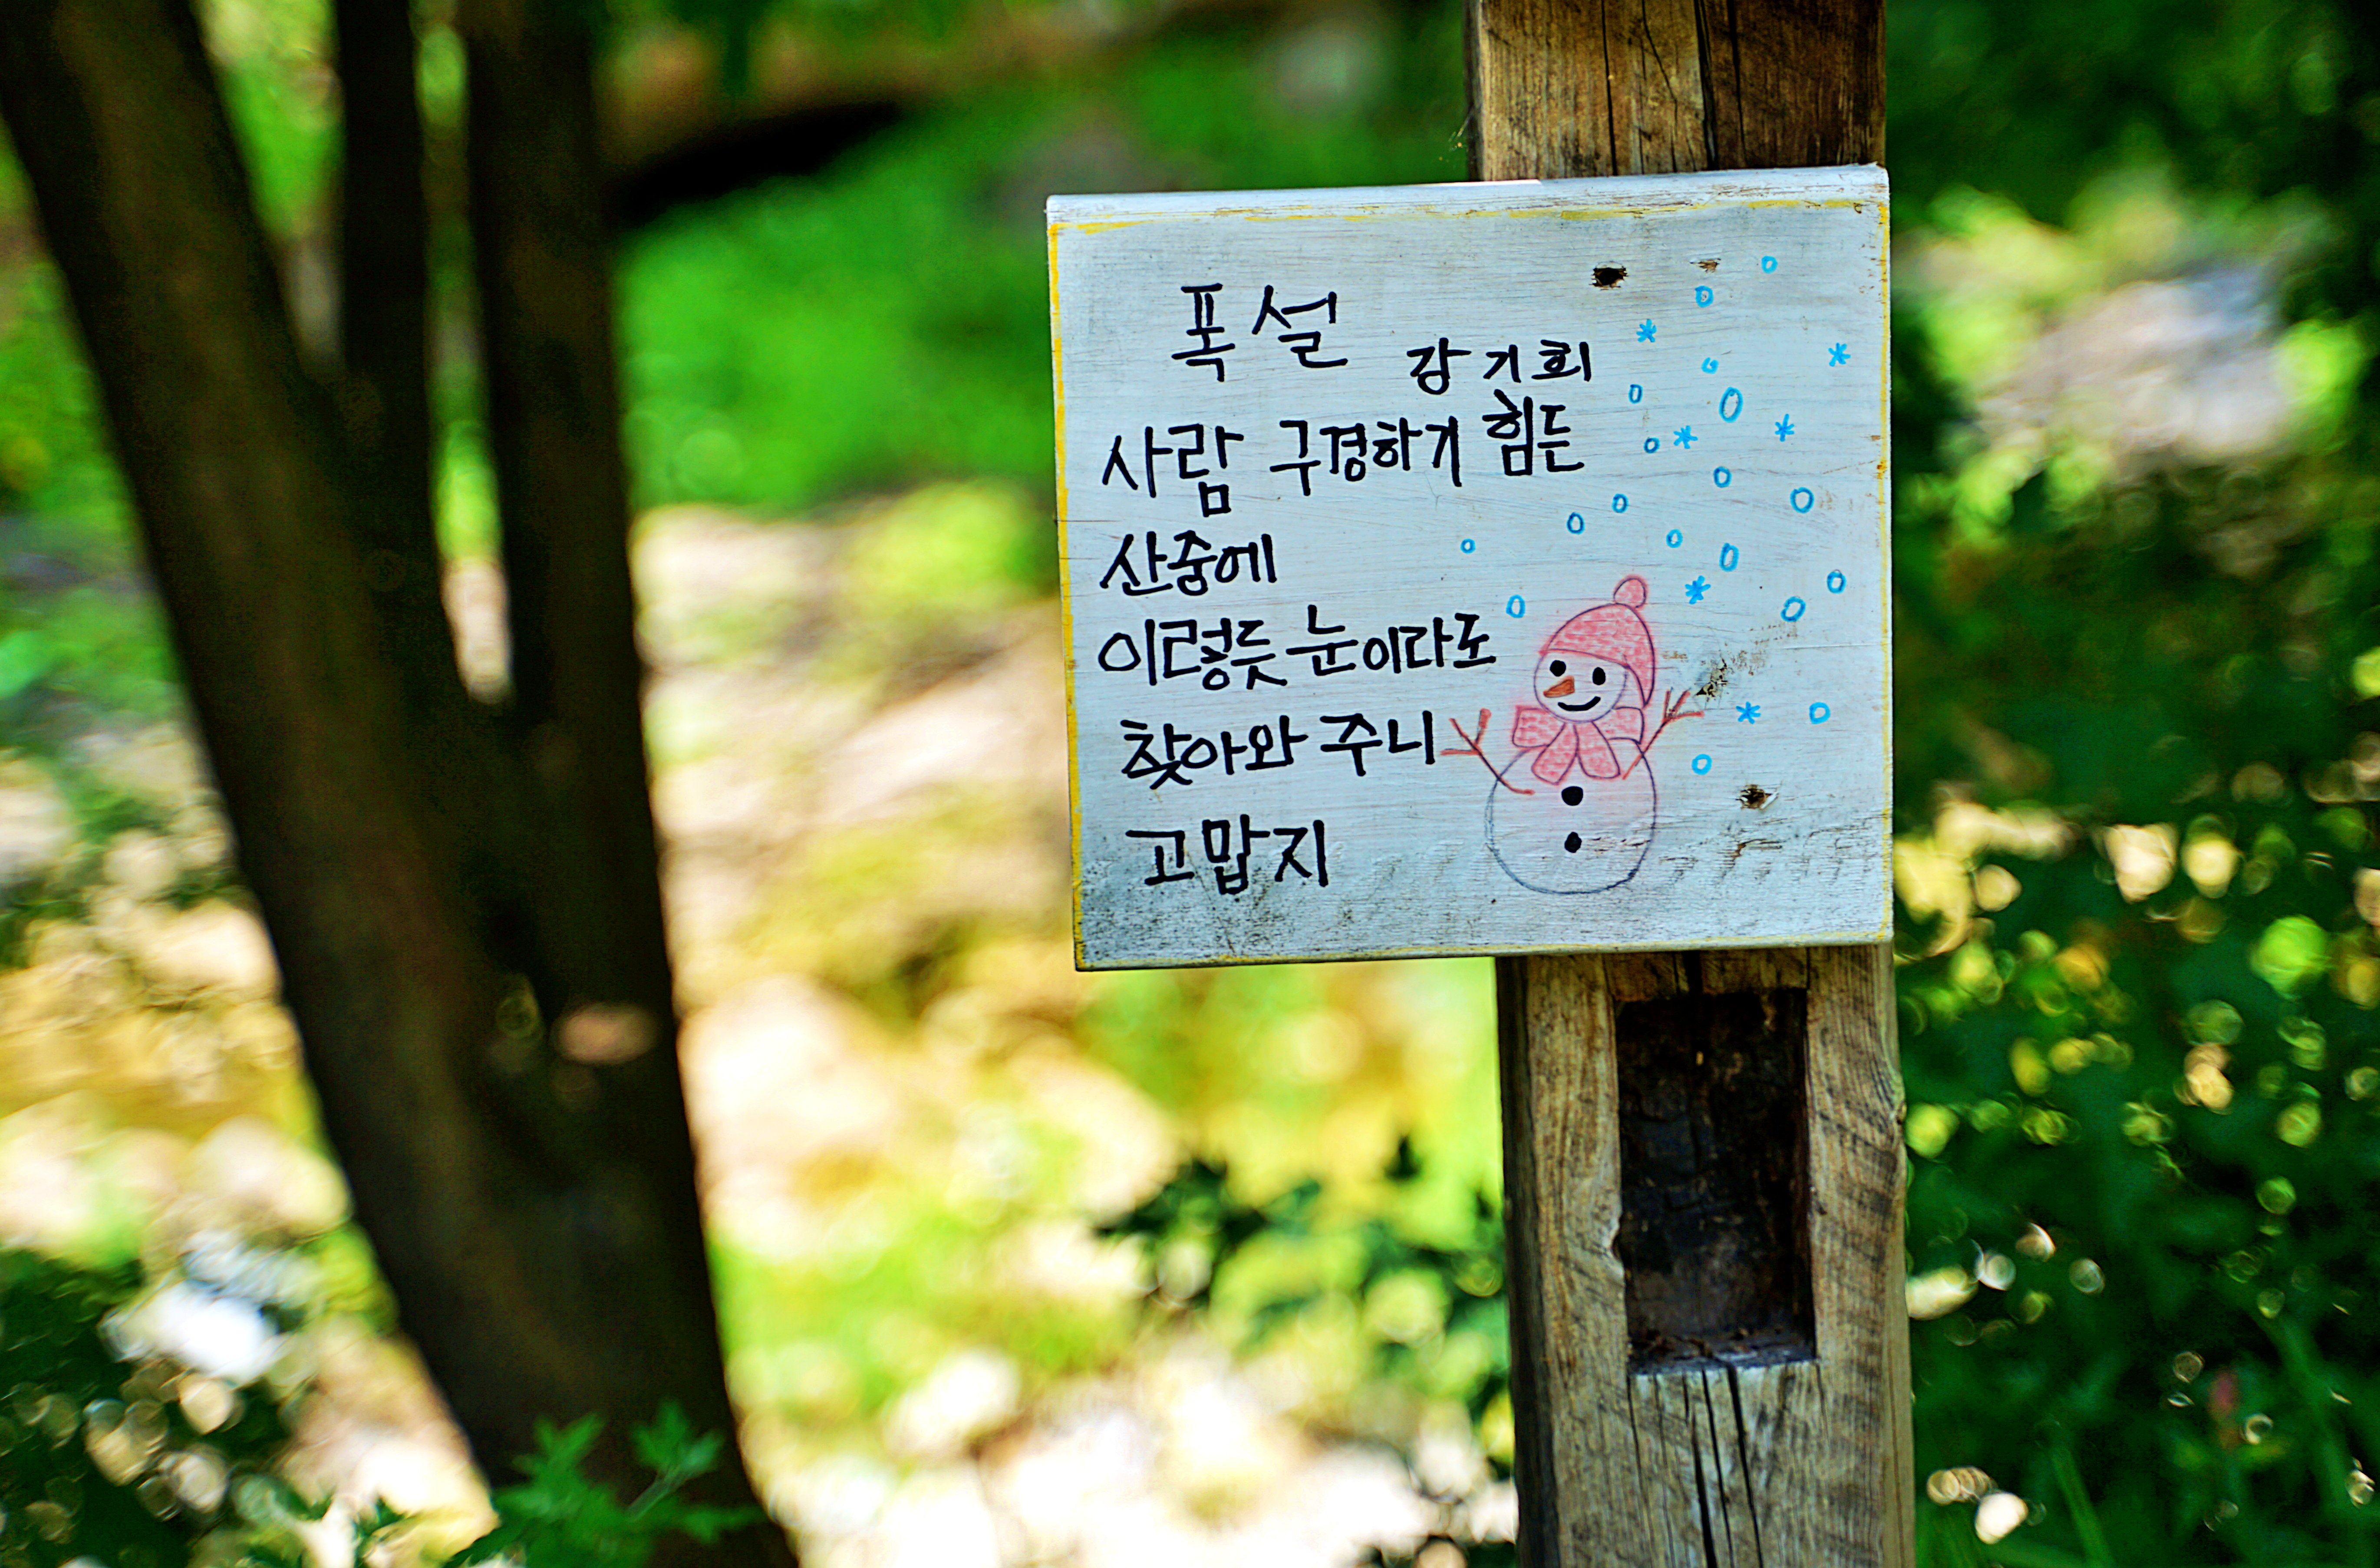 폭설
강기희
사람 구경하기 힘든
산중에
이렇듯 눈이라도
찾아와 주니
고맙지